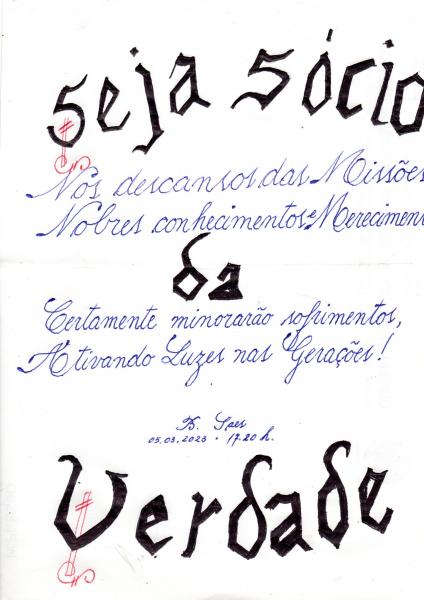 Seja Sócio
Nos descansos das Missões
Nobres conhecimentos e Mereciment
da
Certamente minorarão sofrimentos,
Ativando Luzes nas Gerações!
B. Saes
05.03.2023 · 17.20 h.
Verdade